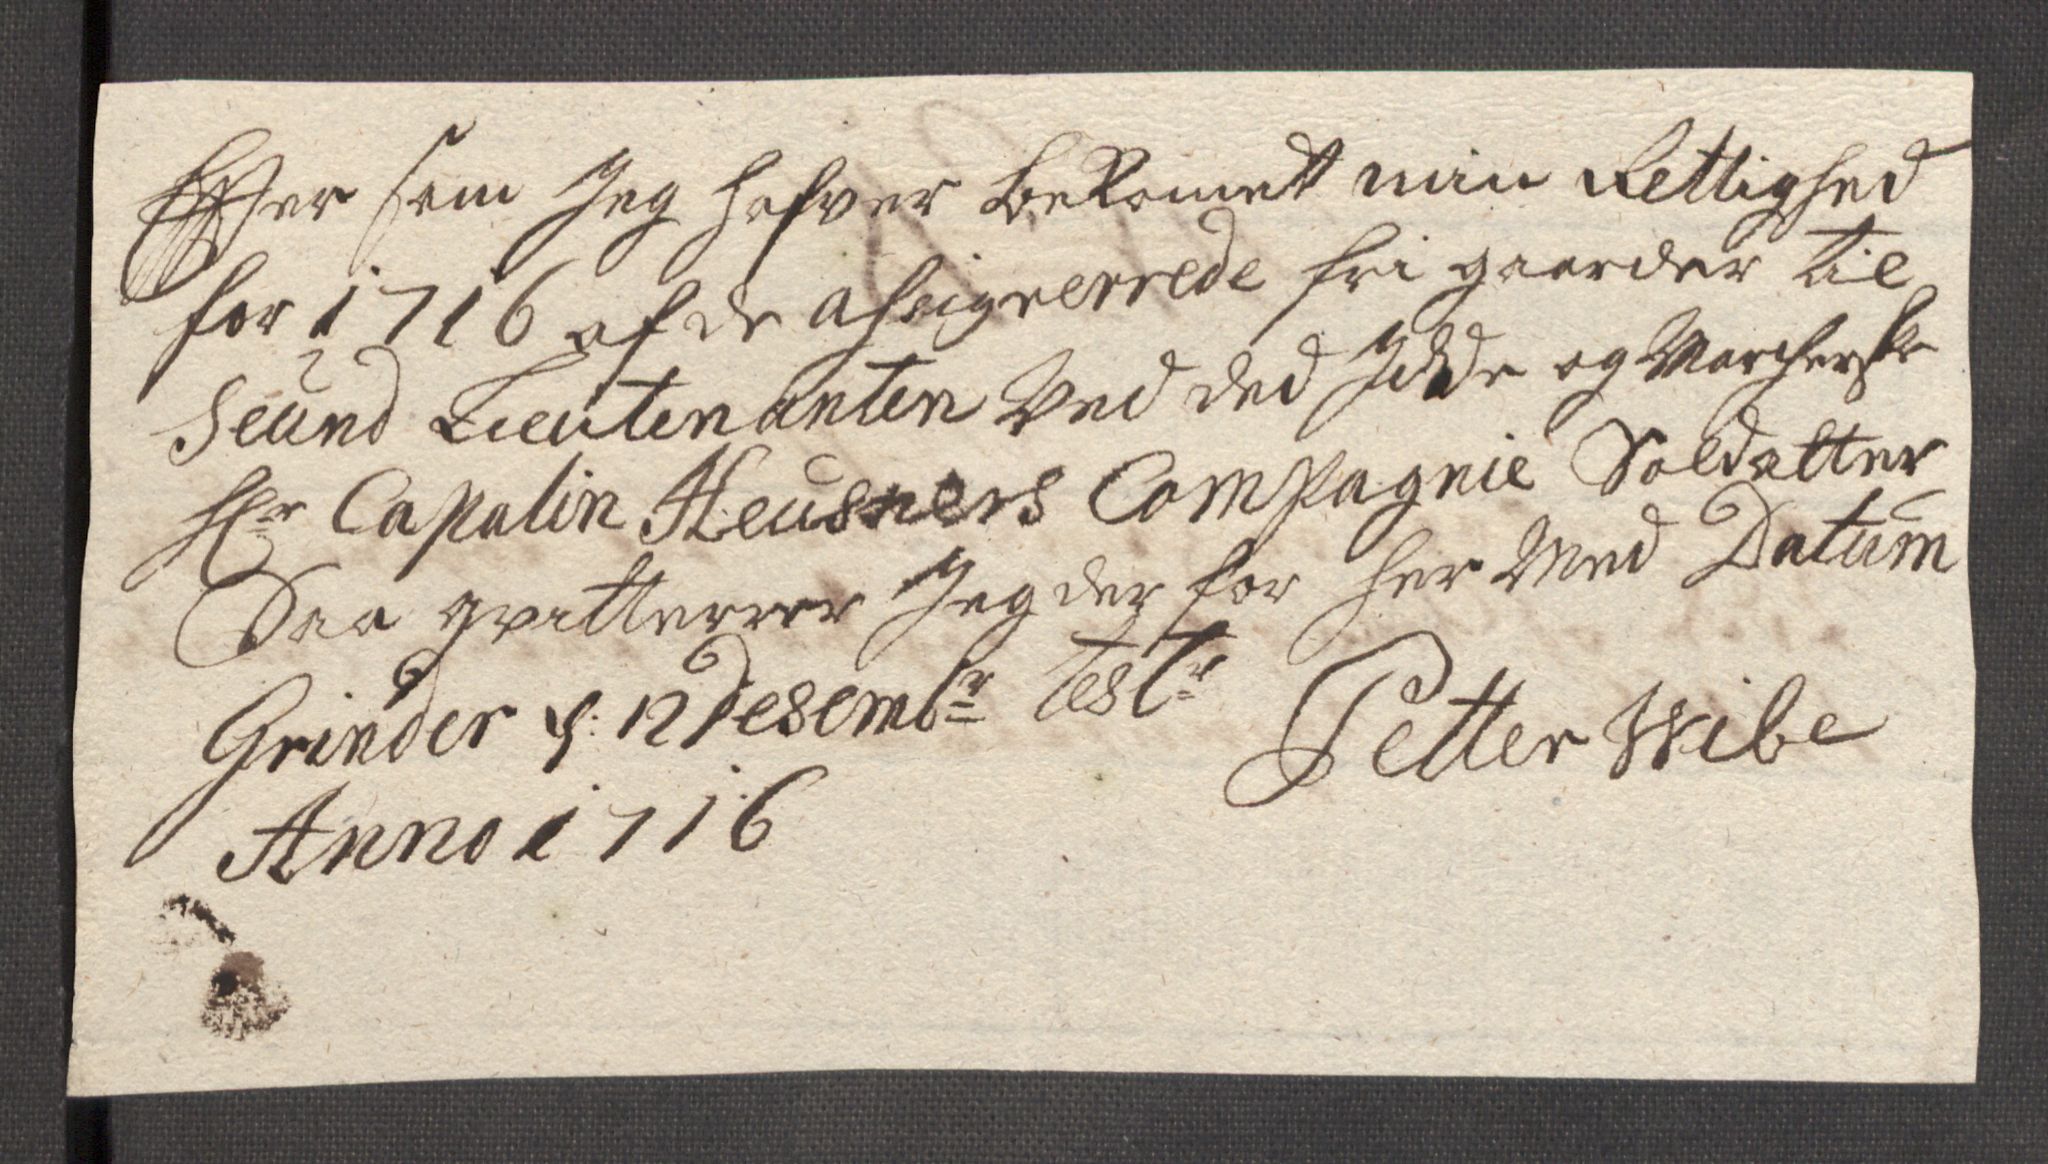 Efter som Jeg hafver bekomet min Rettighed
for 1716 af de assignerrede fri gaarder til
Seund Lieutenanten Ved ded Idde og Marcherske
Hr Capalin Heusners Compagnie Soldatter
Saa qvitterrer Jeg der for her Med Datum
Grinder d: 12 Desembr
Petter Wibe
Anno 1716